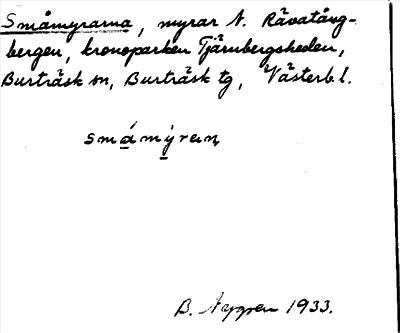 Småmyrarna, myrar N. Rävatång-
bergen, kronoparken Tjärnbergsheden,
Burträsk sn, Burträsk tg, Västerb. l.
B. Nygren 1933.